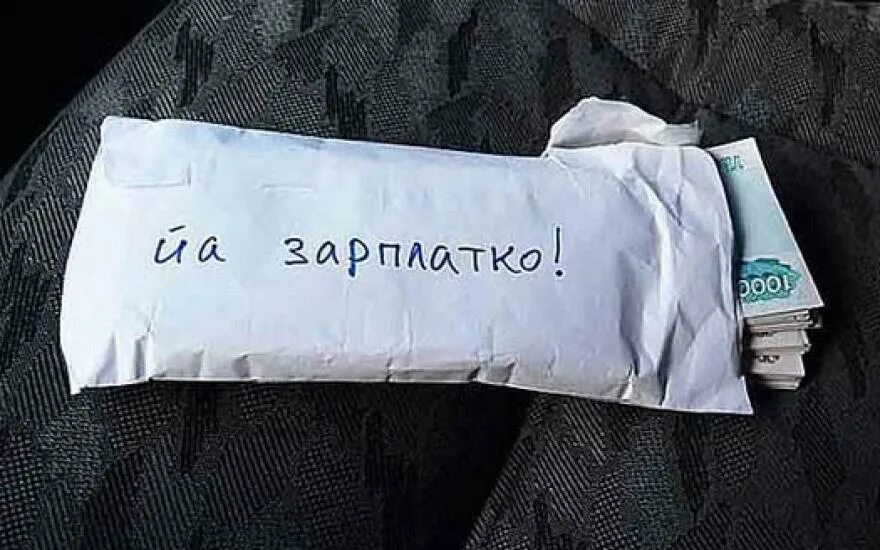 йа зарплатко!
1000